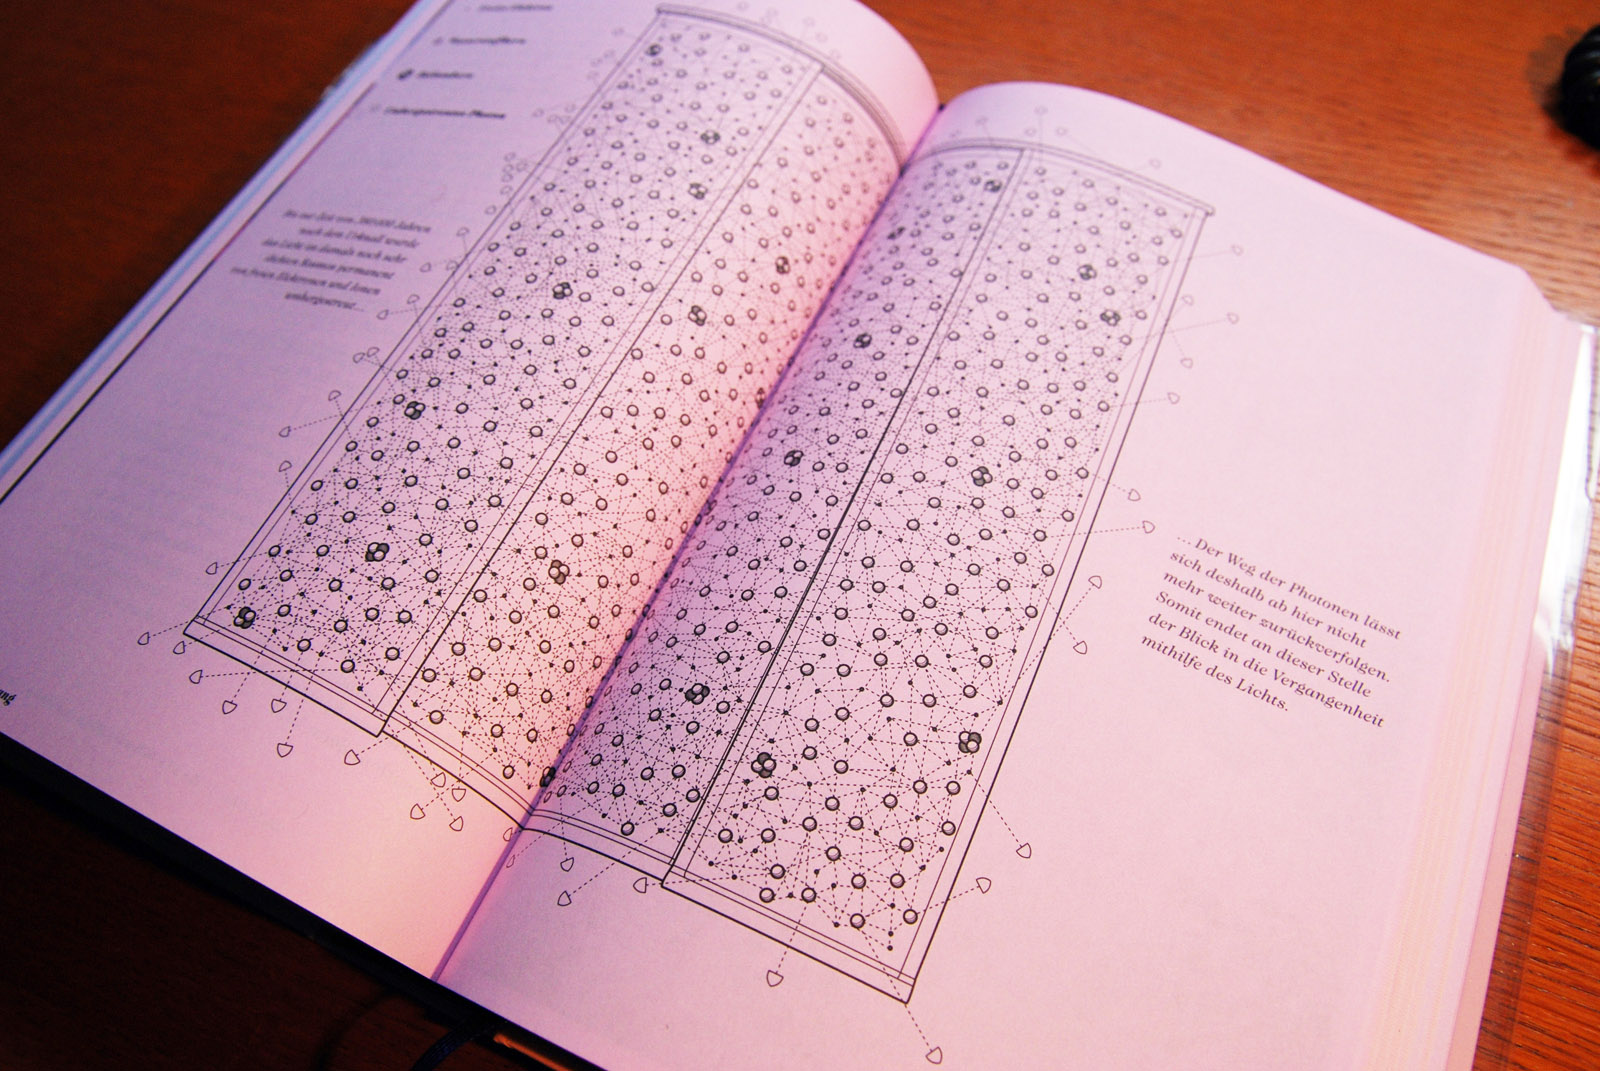 Heliumkern
Umherspringende Photon
Bis zur Zeit von 380 000 Jahren
nach dem Urknall wurde
das Licht im damals noch sehr
dichten Kosmos permanent
von freien Elektronen und Ionen
umhergestreut...
... Der Weg der Photonen lässt
sich deshalb ab hier nicht
mehr weiter zurückverfolgen.
Somit endet an dieser Stelle
der Blick in die Vergangenheit
mithilfe des Lichts.